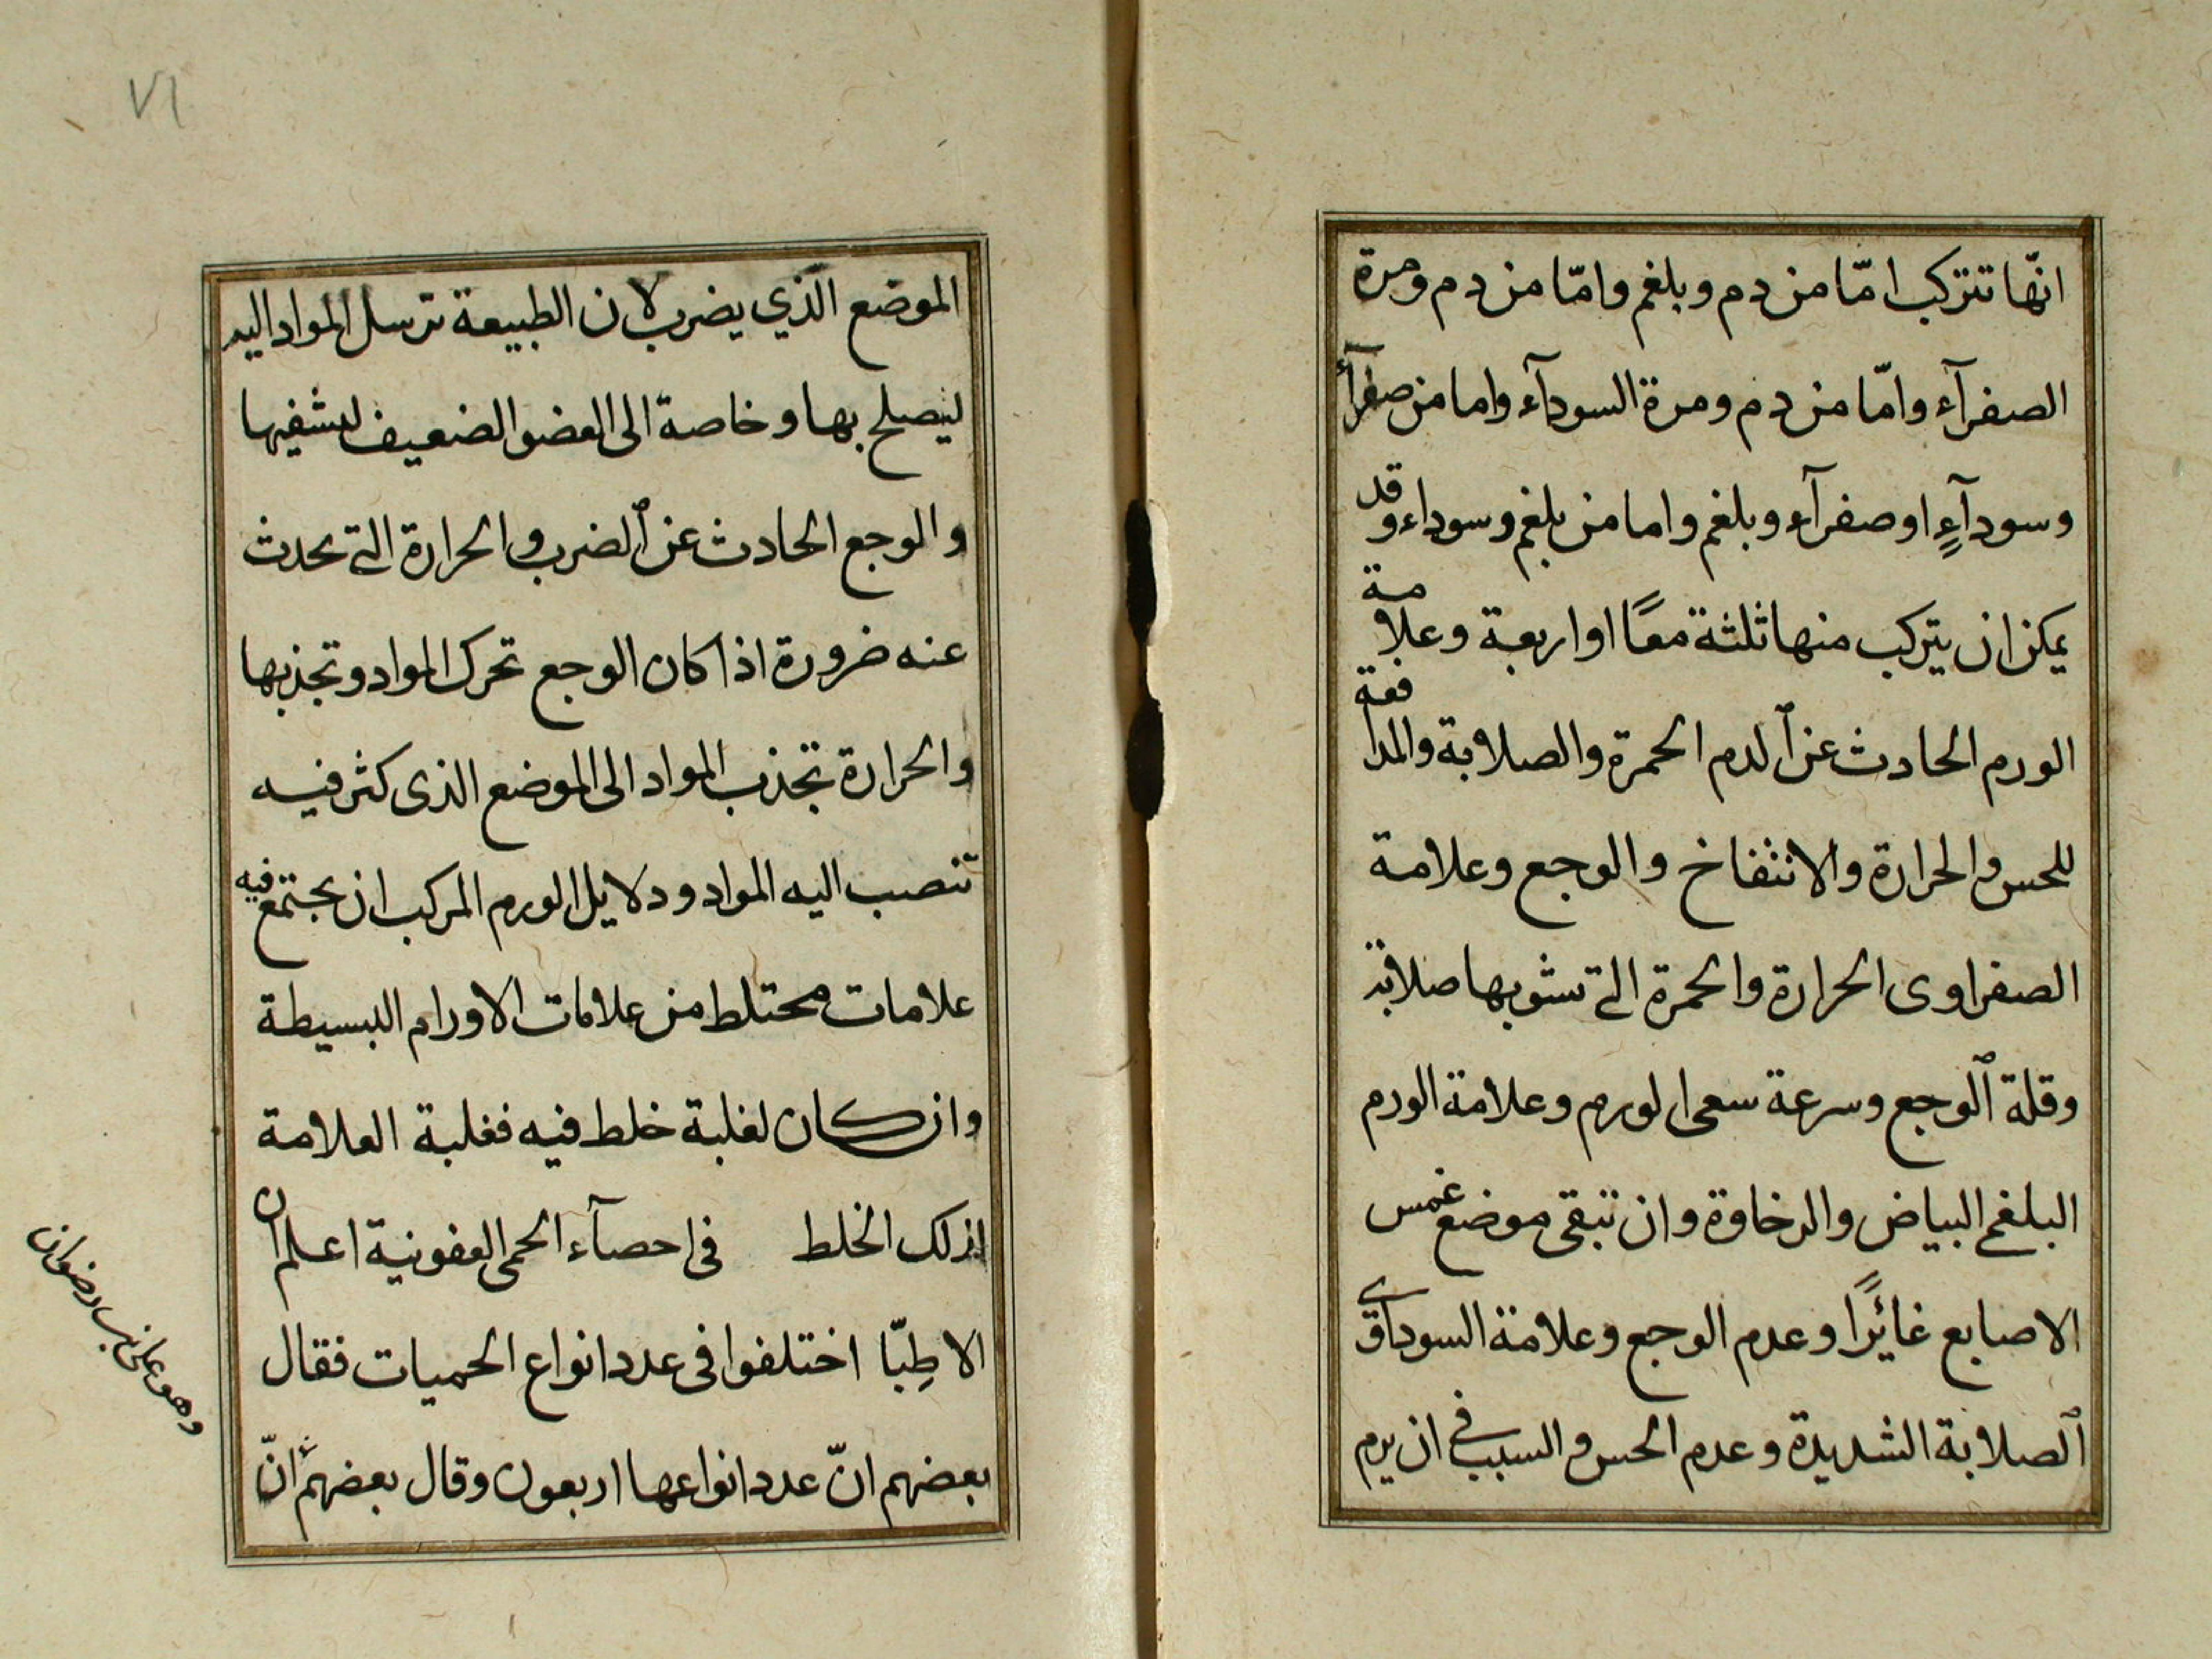 انّها تتركب امّا من دم وبلغم وامّا من دم ومرة
الصفرآء وامّا من دم ومرة السودآء واما من صفرآء
وسودآءٍ او صفرآء وبلغم واما من بلغم وسوداء وقد
يمكن ان يتركب منها ثلثة معًا او اربعة وعلامة
الورم الحادث عن ٱلدم الحمرة والصلابة والمدافعة
للحس والحرارة والانتفاخ والوجع وعلامة
الصفراوى الحرارة والحمرة التى تشوبها صلابة
وقلة ٱلوجع وسرعة سعى الورم وعلامة الورم
البلغمى البياض والرخاوة وان تبقى موضع غمس
الاصابع غائرًا وعدم الوجع وعلامة السوداوى
ٱلصلابة الشديدة وعدم الحس والسبب فى ان يرم
٧١
الموضع الّذي يضرب لان الطبيعة ترسل المواد اليه
ليصلح بها وخاصة الى العضو الضعيف ليشفيها
والوجع الحادث عن ٱلضرب والحرارة التى تحدث
عنه ضرورة اذا كان الوجع تحرك المواد وتجذبها
والحرارة تجذب المواد الى الموضع الذى كثر فيه
تنصب اليه المواد ودلايل الورم المركب ان يجتمع فيه
علامات مختلط من علامات الاورام البسيطة
وان كان لغلبة خلط فيه فغلبة العلامة
لذلك الخلط فى احصآء الحمى العفونية اعلم ان
الاطِبّا اختلفوا فى عدد انواع الحميات فقال
بعضهم انّ عدد انواعها اربعون وقال بعضهم انّ
وهو على بن رضوان